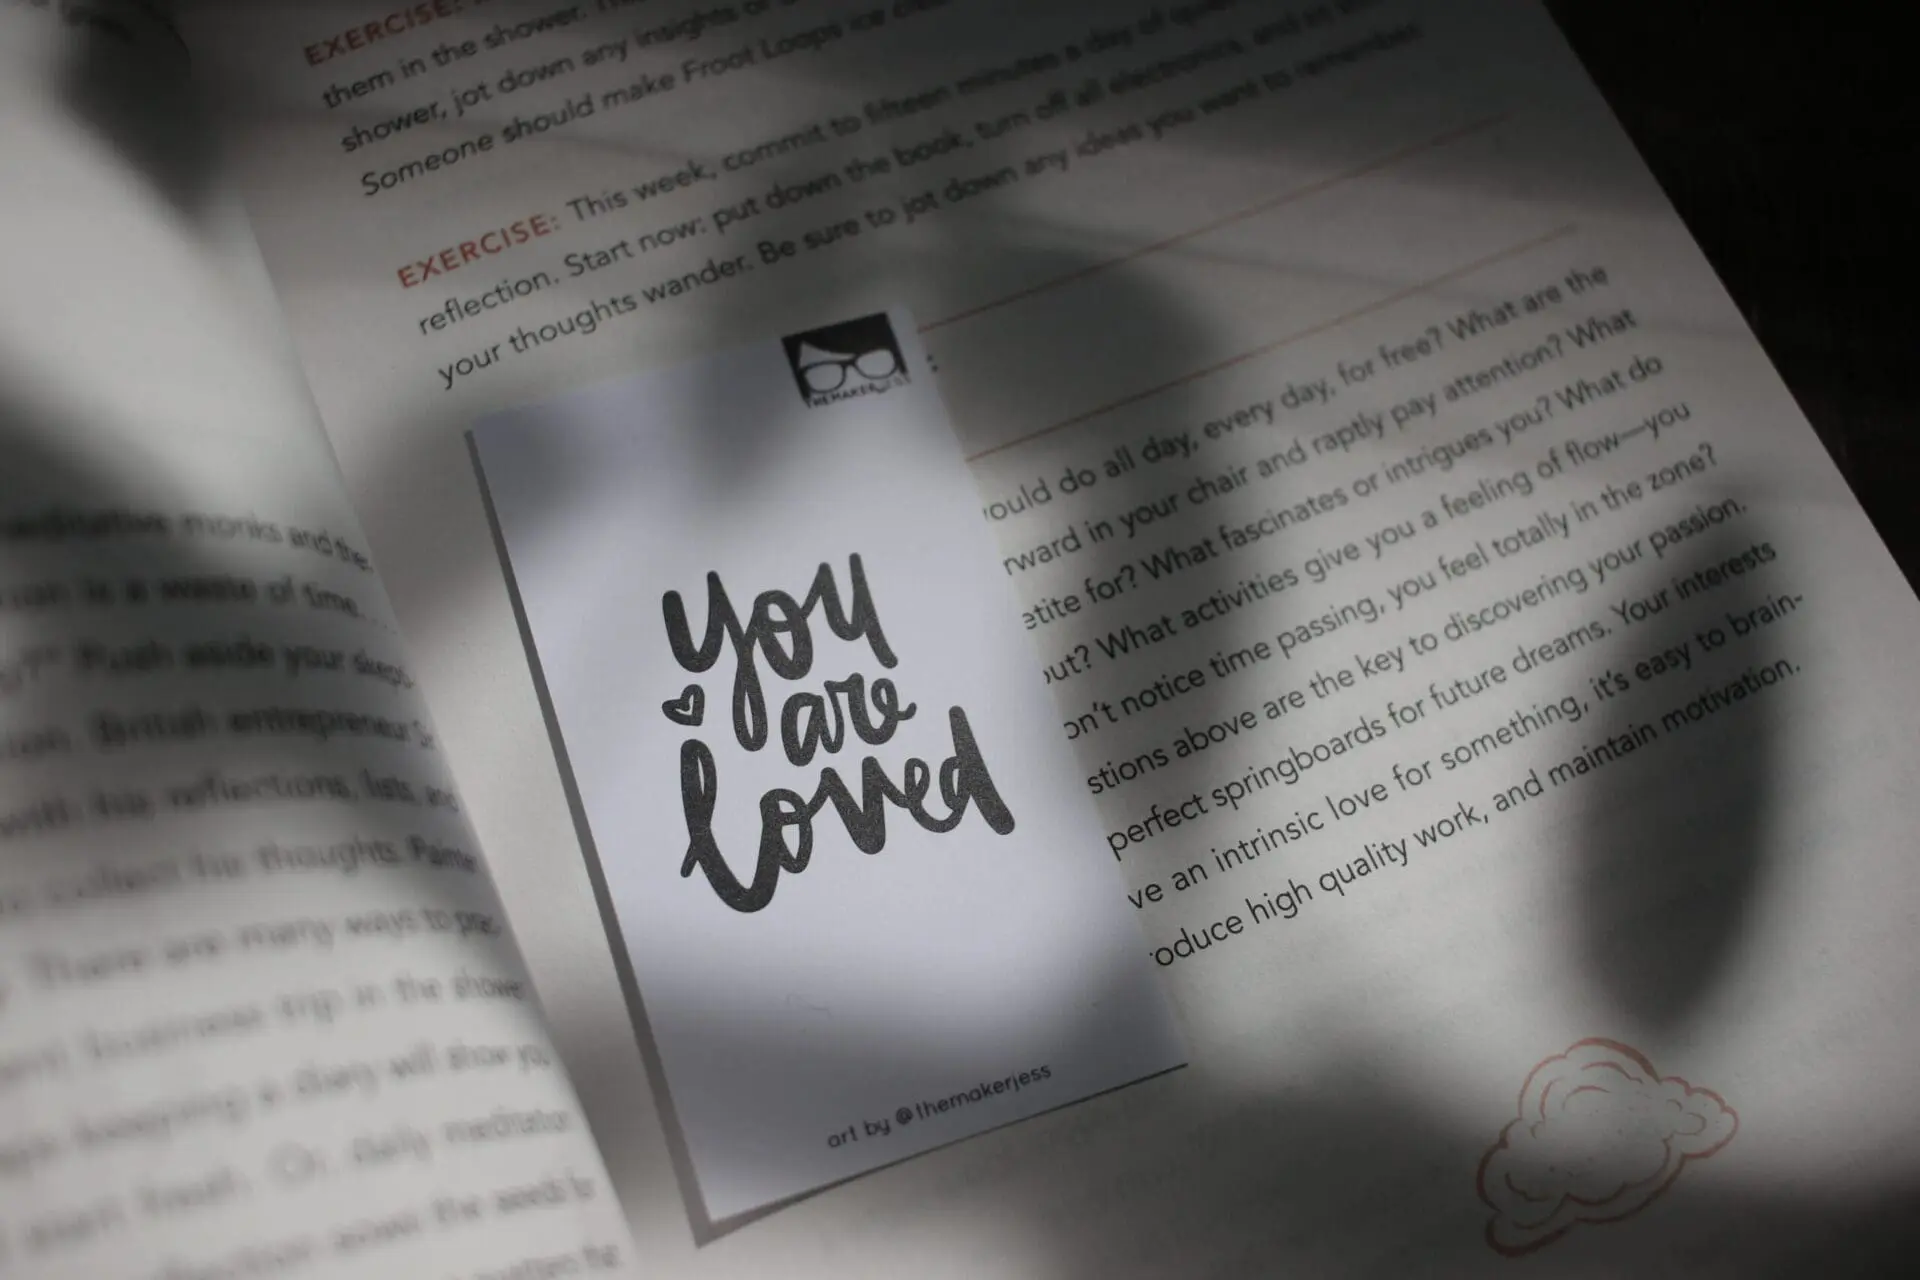 meditative monks and the
is a waste of time...
Push aside your
British entrepreneur
with his reflections, lists, and
collect his thoughts.
There are many ways to
business trip in the shower
keeping a diary will show
start fresh. Or, daily
the seeds
EXERCISE:
them in the shower.
shower, jot down any insights or
Someone should make Froot Loops ice
EXERCISE: This week, commit to fifteen minutes a day of
reflection. Start now: put down the book, turn off all electronics, and
your thoughts wander. Be sure to jot down any ideas you want to remember
:
ould do all day, every day, for free? What are the
rward in your chair and raptly pay attention? What
etite for? What fascinates or intrigues you? What do
out? What activities give you a feeling of flow—you
on't notice time passing, you feel totally in the zone?
stions above are the key to discovering your passion.
perfect springboards for future dreams. Your interests
ve an intrinsic love for something, it's easy to brain-
oduce high quality work, and maintain motivation.
THEMAKERJESS
you
are
loved
art by @themakerjess